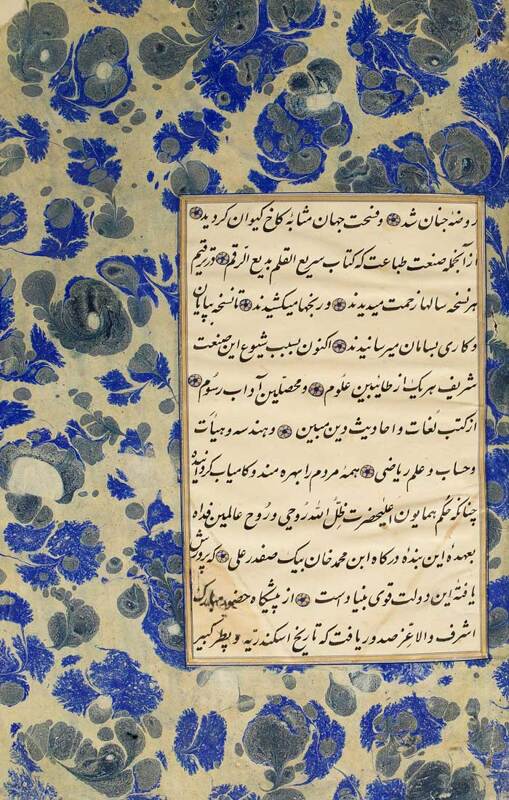 روضهٔ جنان شد و فسحت جهان مشابهٔ کاخ کیوان کردید
از آنجمله صنعت طباعت که کتاب سریع القلم بدیع الرقم در ترقیم
هر نسخه سالها زحمت میدیدند و رنجها میکشیدند تا نسخه بپایان
و کاری بسامان میرسانیدند اکنون بسبب شیوع این صنعت
شریف هر یک از طالبین علوم و محصلین آداب رسوم
از کتب لغات و احادیث دین مبین و هندسه و هیأت
و حساب و علم ریاضی همهٔ مردم را بهره مند و کامیاب کردانیده
چنانکه بحکم همایون اعلیحضرت ظل الله روحی و روح عالمین فداه
بعهدهٔ این بندهٔ درکاه ابن محمد خان بیک صفدر علی که پرورش
یافتهٔ این دولت قوی بنیادست از پیشکاه حضور مبارک
اشرف والا عز صدور یافت که تاریخ اسکندریه و پطر کبیر